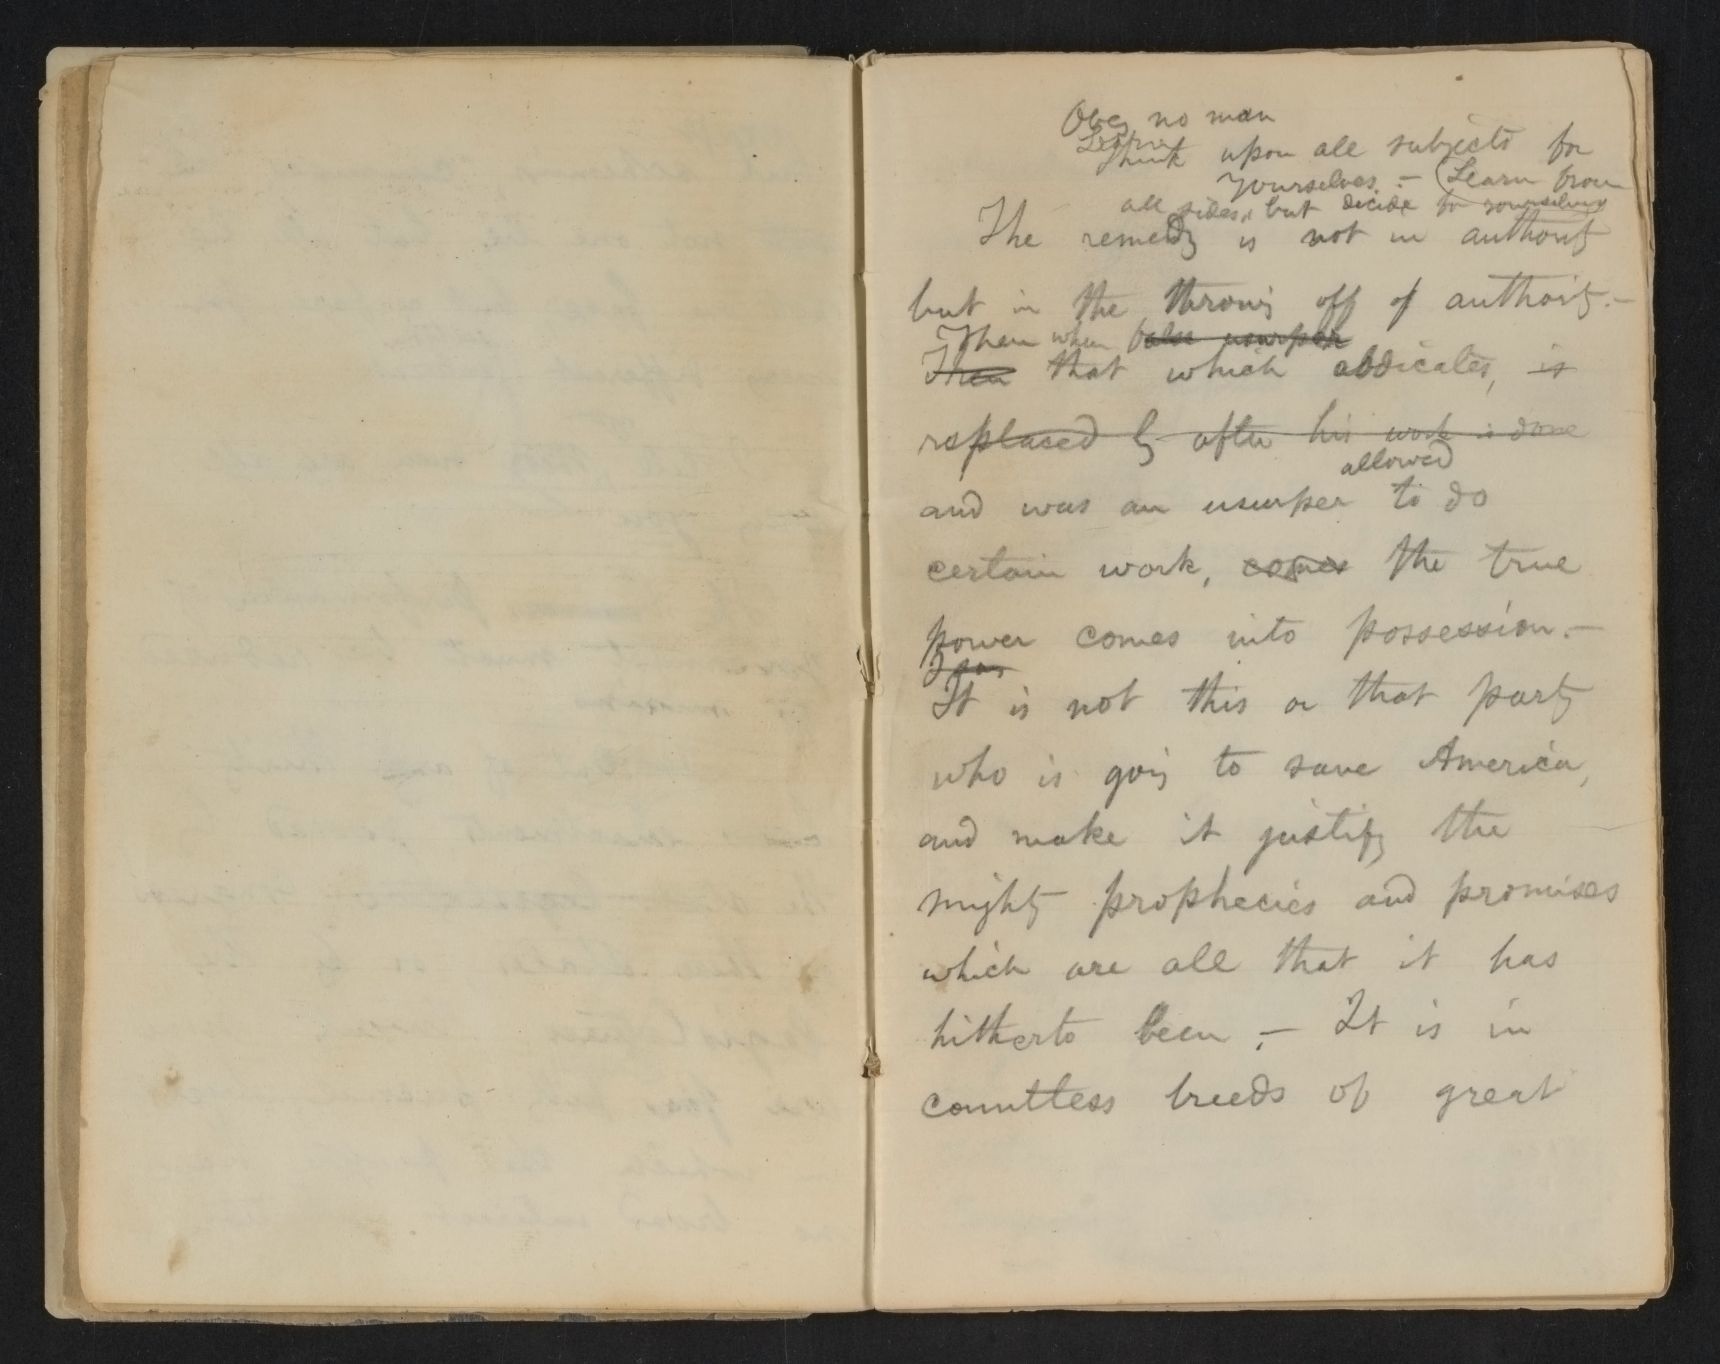 Obey no man
Learn
Think upon all subjects for
yourselves. — (Learn from
all sides, but decide for yourselves
The remedy is not in authority
but in the throwing off of authority. —
Then when false usurper
Then that which abdicates, is
replaced by after his work is done
allowed
and was an usurper to do
certain work, comes the true
power comes into possession. —
I say
It is not this or that party
who is going to save America,
and make it justify the
mighty prophecies and promises
which are all that it has
hitherto been. — It is in
countless breeds of great